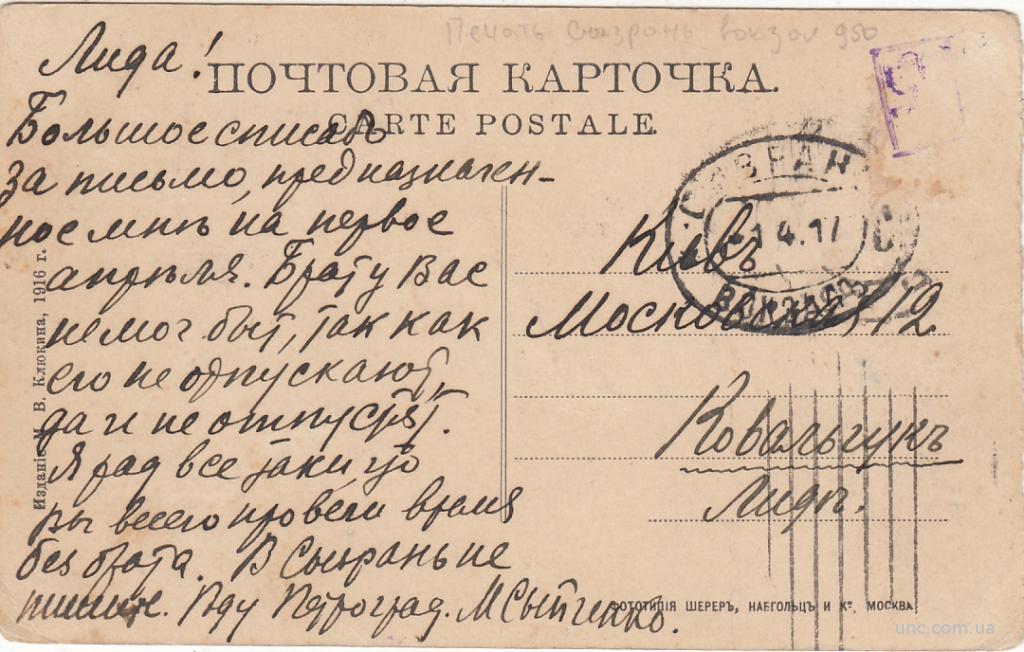 Печать Сызрань вокзал 950
Лида!
ПОЧТОВАЯ КАРТОЧКА.
CARTE POSTALE.
Большое списибо
за письмо, предназначен-
ное мнѣ на первое
апрѣля. Брат у Вас
не мог быт, так как
его не отпускают,
да и не отпустят.
Я рад все таки что
вы весело провели время
без брата. В Сызрань не
пишите. Еду Петроград. М Сытченко.
СЫЗРАНЬ
1 4.17
ВОКЗАЛЪ
Кіевъ
Московская 12
Ковальчукъ
Лидѣ.
Изданіе М. В. Клюкина, 1916 г.
ФОТОТИПІЯ ШЕРЕРЪ, НАБГОЛЬЦЪ И Кº. МОСКВА.
unc.com.ua